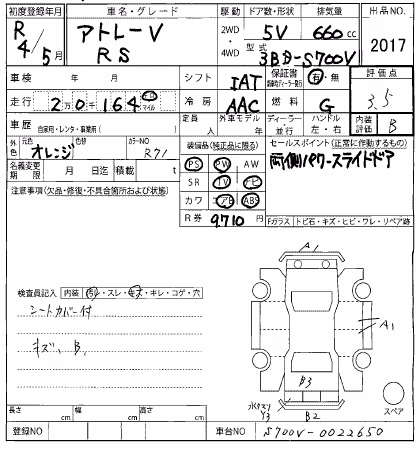 初度登録年月 車名・グレード 駆動 ドア数・形状 排気量 出品NO.
R 4/5月 アトレーV RS 2WD 4WD 5V 660cc 2017
型式 3BD-S700V
車検 年 月 シフト IAT 保証書 有・無 評価点
走行 2万0千164 キロ マイル 冷房 AAC 燃料 G 3.5
車歴 自家用・レンタ・事業用( ) 定員 人 外車モデル 年 ディーラー・並行 ハンドル 左・右 内装評価 B
外色 元色 オレンジ 色替 カラーNO R71 装備品(純正品に限る) セールスポイント(正常に作動するもの)
名義変更期限 月 日迄 積載 t PS PW AW 両側パワースライドドア
注意事項(欠品・修復・不具合箇所および状態) SR TV ナビ
カワ エアB ABS
R券 9,710 円 Fガラス トビ石・キズ・ヒビ・ワレ・リペア跡
A1
検査員記入 内装 汚レ・スレ・キズ・キレ・コゲ・穴
シートカバー付
キズ、B、
A1
B3
Y3
B2
スペア
長さ cm 幅 cm 高さ cm
登録NO 車台NO S700V-0022650